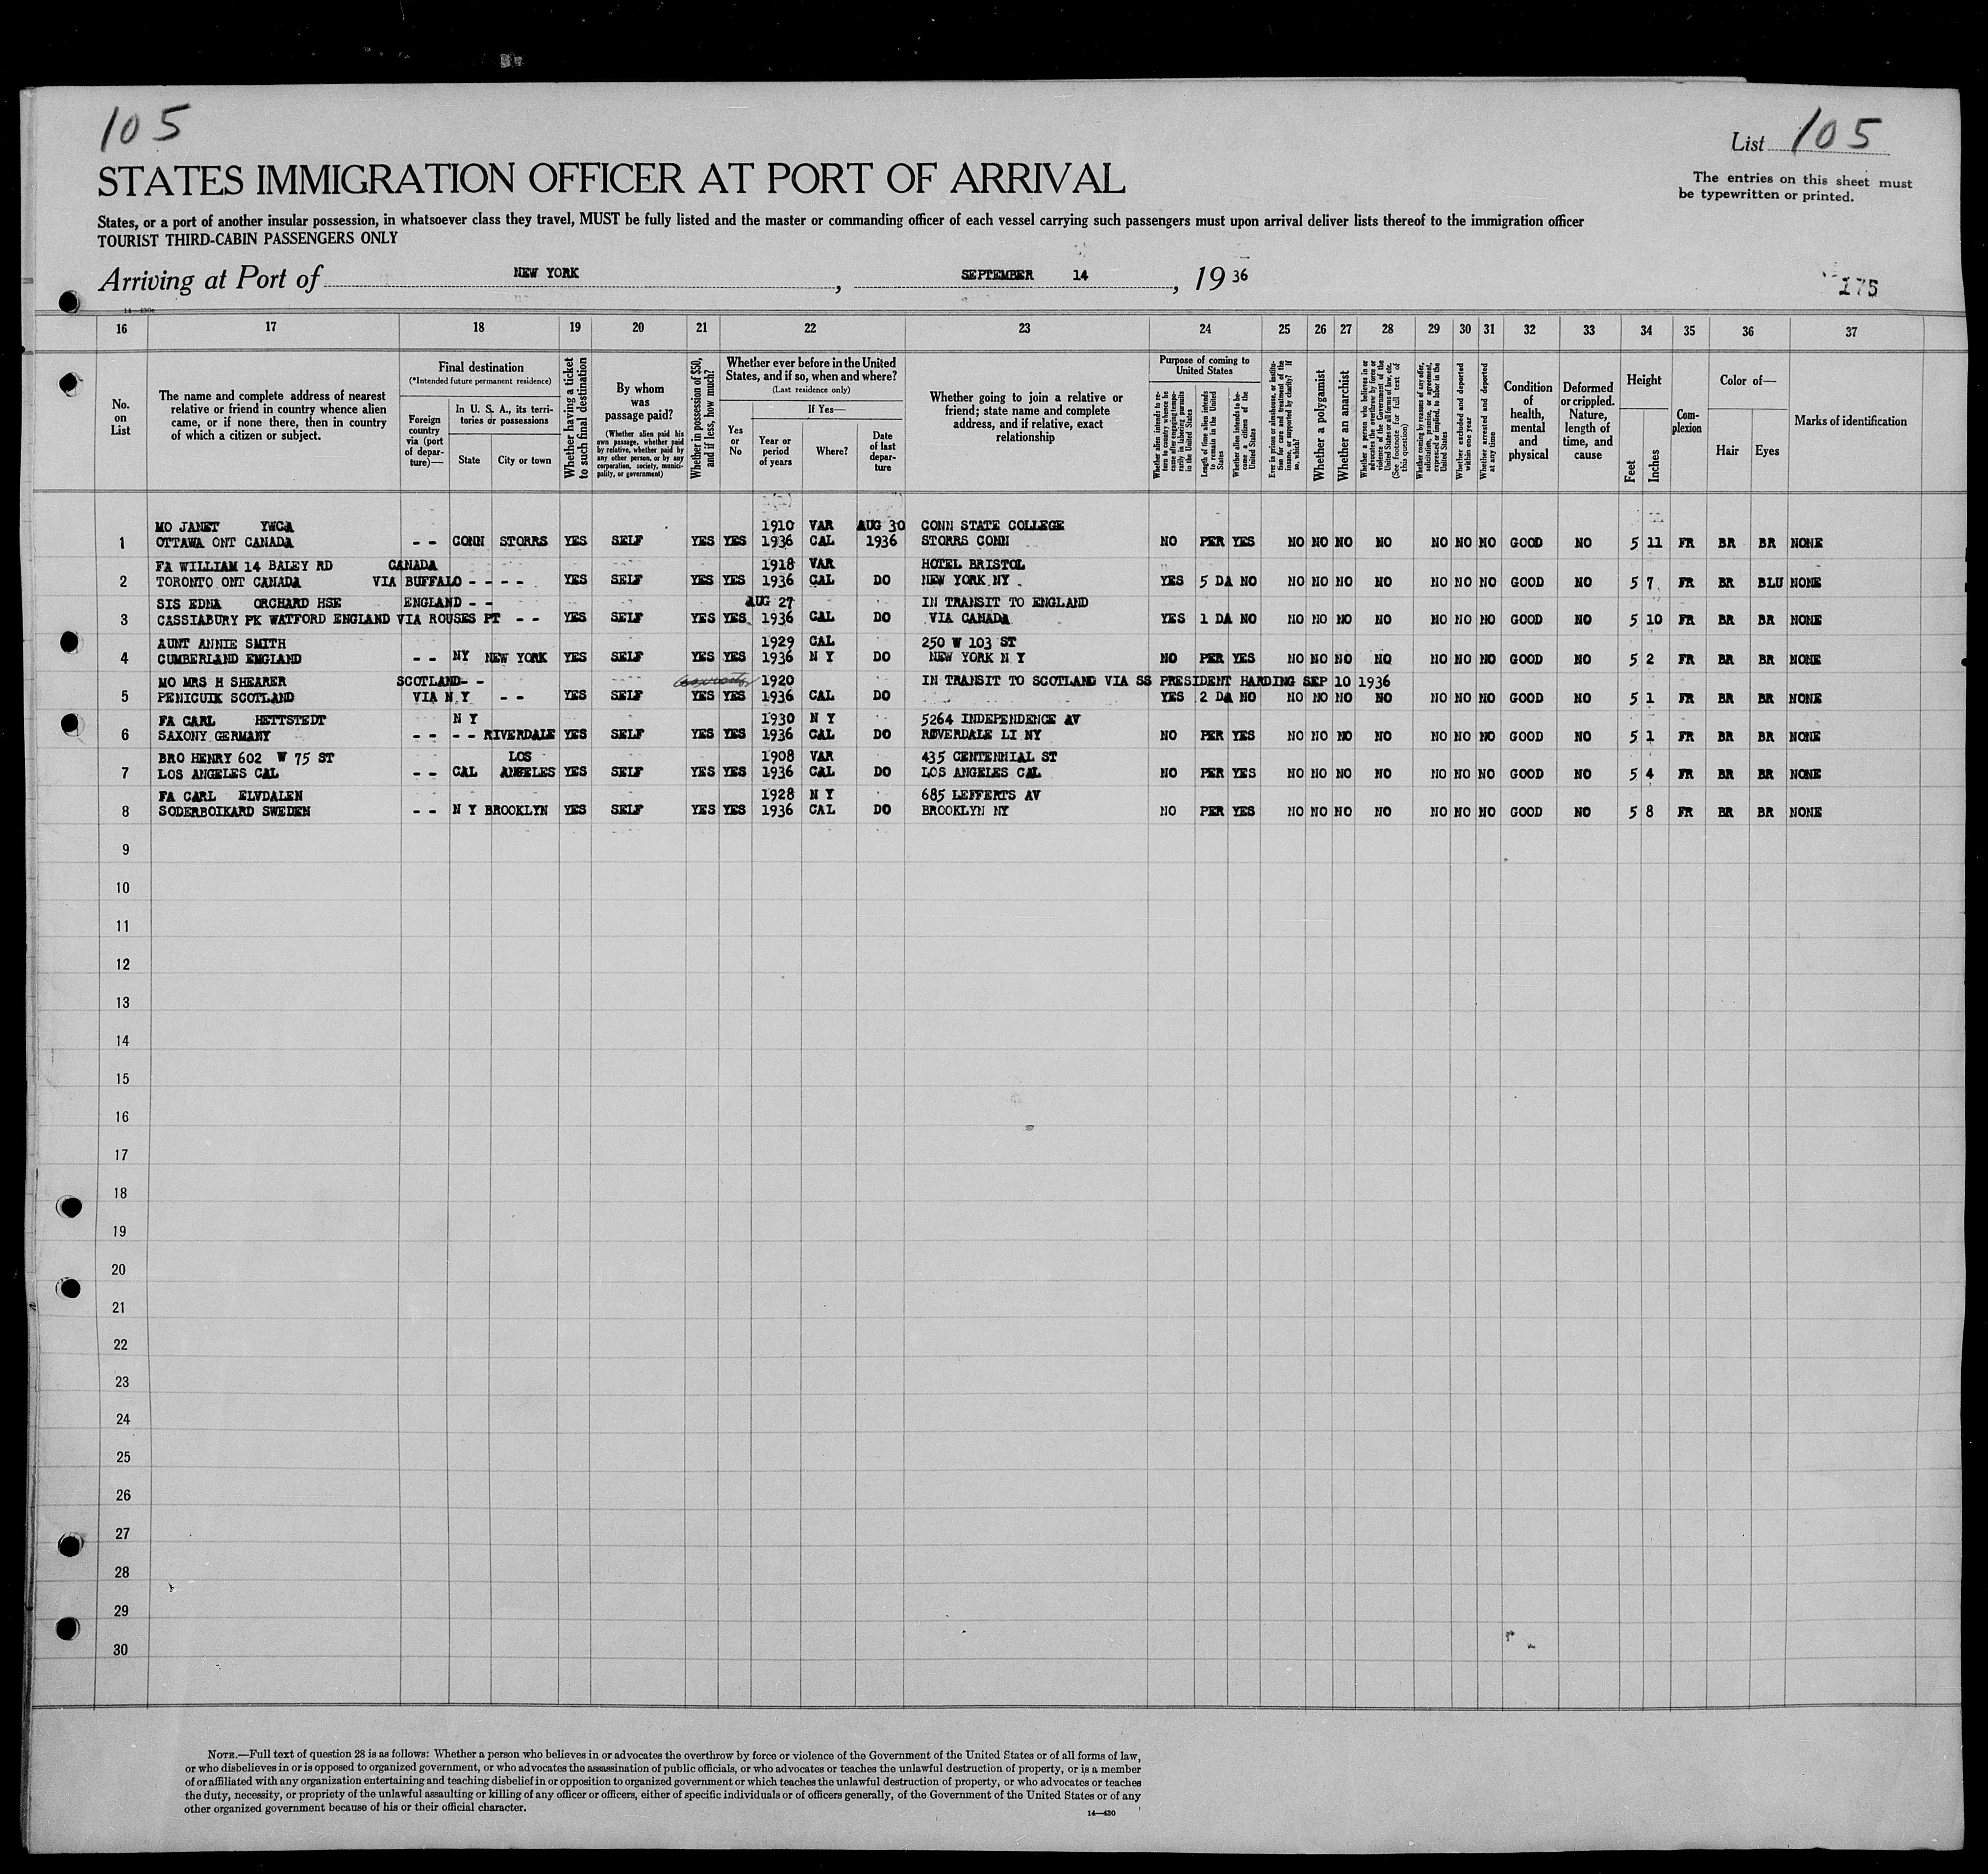 105
List 105
STATES IMMIGRATION OFFICER AT PORT OF ARRIVAL
The entries on this sheet must
be typewritten or printed.
States, or a port of another insular possession, in whatsoever class they travel, MUST be fully listed and the master or commanding officer of each vessel carrying such passengers must upon arrival deliver lists thereof to the immigration officer
TOURIST THIRD-CABIN PASSENGERS ONLY
Arriving at Port of NEW YORK, SEPTEMBER 14, 1936
175
16 17 18 19 20 21 22 23 24 25 26 27 28 29 30 31 32 33 34 35 36 37
No.
on
List
The name and complete address of nearest
relative or friend in country whence alien
came, or if none there, then in country
of which a citizen or subject.
Final destination
(*Intended future permanent residence)
Foreign
country
via (port
of depar-
ture)—
In U. S. A., its terri-
tories or possessions
State
City or town
Whether having a ticket
to such final destination
By whom
was
passage paid?
(Whether alien paid his
own passage, whether paid
by relative, whether paid by
any other person, or by any
corporation, society, munici-
pality, or government)
Whether in possession of $50,
and if less, how much?
Whether ever before in the United
States, and if so, when and where?
(Last residence only)
Yes
or
No
If Yes—
Year or
period
of years
Where?
Date
of last
depar-
ture
Whether going to join a relative or
friend; state name and complete
address, and if relative, exact
relationship
Purpose of coming to
United States
Whether alien intends to re-
turn to country whence he
came after engaging tempo-
rarily in laboring pursuits
in the United States
Length of time alien intends
to remain in the United
States
Whether alien intends to be-
come a citizen of the
United States
Ever in prison or almshouse, or institu-
tion for care and treatment of the
insane, or supported by charity? If
so, which?
Whether a polygamist
Whether an anarchist
Whether a person who believes in or
advocates the overthrow by force or
violence of the Government of the
United States or all forms of law, etc.
(See footnote for full text of
this question)
Whether coming by reasons of any offer,
solicitation, promise, or agreement,
expressed or implied, to labor in the
United States
Whether excluded and deported
within one year
Whether arrested and deported
at any time
Condition
of
health,
mental
and
physical
Deformed
or crippled.
Nature,
length of
time, and
cause
Height
Feet
Inches
Com-
plexion
Color of—
Hair
Eyes
Marks of identification
MO JANET YWCA 1910 VAR AUG 30 CONN STATE COLLEGE
1 OTTAWA ONT CANADA - - CONN STORRS YES SELF YES YES 1936 CAL 1936 STORRS CONN NO PER YES NO NO NO NO NO NO NO GOOD NO 5 11 FR BR BR NONE
FA WILLIAM 14 BALEY RD CANADA 1918 VAR HOTEL BRISTOL
2 TORONTO ONT CANADA VIA BUFFALO - - - - YES SELF YES YES 1936 CAL DO NEW YORK NY YES 5 DA NO NO NO NO NO NO NO NO GOOD NO 5 7 FR BR BLU NONE
SIS EDNA ORCHARD HSE ENGLAND - - AUG 27 IN TRANSIT TO ENGLAND
3 CASSIABURY PK WATFORD ENGLAND VIA ROUSES PT - - YES SELF YES YES 1936 CAL DO VIA CANADA YES 1 DA NO NO NO NO NO NO NO NO GOOD NO 5 10 FR BR BR NONE
AUNT ANNIE SMITH 1929 CAL 250 W 103 ST
4 CUMBERLAND ENGLAND - - NY NEW YORK YES SELF YES YES 1936 N Y DO NEW YORK N Y NO PER YES NO NO NO NO NO NO NO GOOD NO 5 2 FR BR BR NONE
MO MRS H SHEARER SCOTLAND - - 1920 IN TRANSIT TO SCOTLAND VIA SS PRESIDENT HARDING SEP 10 1936
5 PENICUIK SCOTLAND VIA N Y - - YES SELF YES YES 1936 CAL DO YES 2 DA NO NO NO NO NO NO NO NO GOOD NO 5 1 FR BR BR NONE
FA CARL HETTSTEDT N Y 1930 N Y 5264 INDEPENDENCE AV
6 SAXONY GERMANY - - - - RIVERDALE YES SELF YES YES 1936 CAL DO RØVERDALE LI NY NO PER YES NO NO NO NO NO NO NO GOOD NO 5 1 FR BR BR NONE
BRO HENRY 602 W 75 ST LOS 1908 VAR 435 CENTENNIAL ST
7 LOS ANGELES CAL - - CAL ANGELES YES SELF YES YES 1936 CAL DO LOS ANGELES CAL NO PER YES NO NO NO NO NO NO NO GOOD NO 5 4 FR BR BR NONE
FA CARL ELVDALEN 1928 N Y 685 LEFFERTS AV
8 SODERBOIKARD SWEDEN - - N Y BROOKLYN YES SELF YES YES 1936 CAL DO BROOKLYN NY NO PER YES NO NO NO NO NO NO NO GOOD NO 5 8 FR BR BR NONE
9
10
11
12
13
14
15
16
17
18
19
20
21
22
23
24
25
26
27
28
29
30
NOTE.—Full text of question 28 is as follows: Whether a person who believes in or advocates the overthrow by force or violence of the Government of the United States or of all forms of law,
or who disbelieves in or is opposed to organized government, or who advocates the assassination of public officials, or who advocates or teaches the unlawful destruction of property, or is a member
of or affiliated with any organization entertaining and teaching disbelief in or opposition to organized government or which teaches the unlawful destruction of property, or who advocates or teaches
the duty, necessity, or propriety of the unlawful assaulting or killing of any officer or officers, either of specific individuals or of officers generally, of the Government of the United States or of any
other organized government because of his or their official character.
14—430